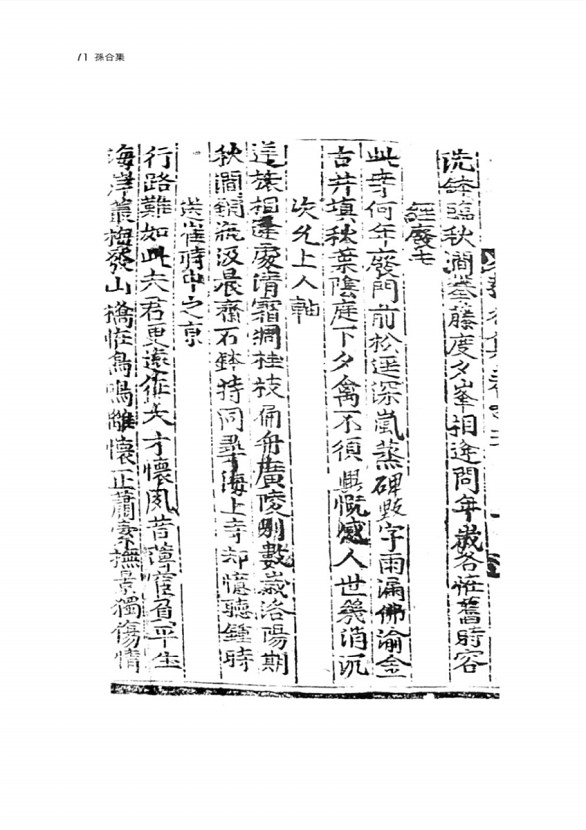 71 孫合集
洗鉢臨秋澗攀藤度夕峯相逢問年歲各恠舊時容
經廢寺
此寺何年廢門前松逕深嵐蒸碑毀字雨漏佛渝金
古井塡秋葉陰庭下夕禽不須興慨感人世幾消沉
次允上人軸
逆旅相逢處淸霜凋桂枝扁舟廣陵別數歲洛陽期
秋澗銅瓶汲晨齋石鉢持同尋海上寺却憶聽鍾時
送崔時中之京
行路難如此夫君更遠征大才懷夙昔薄宦負平生
海岸叢梅發山橋恠鳥鳴離懷正蕭索撫景獨傷情